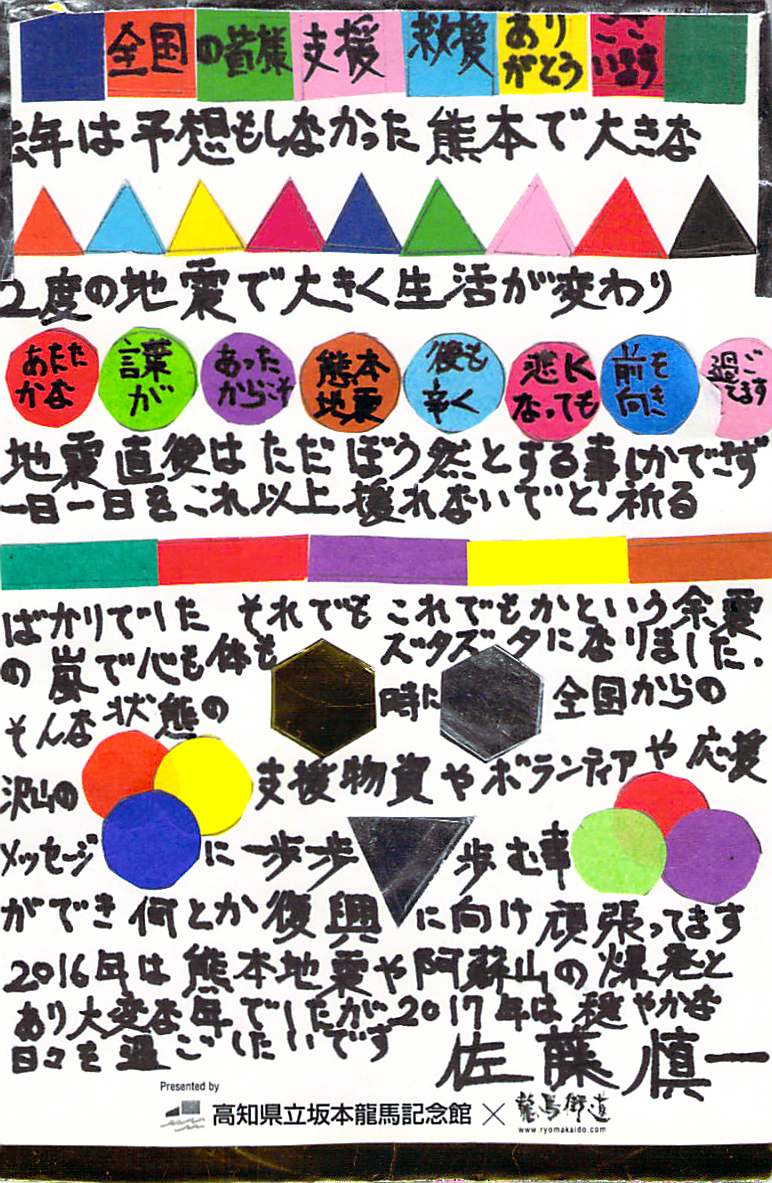 全国 の皆様 支援 救援 ありがとう ございます
去年は予想もしなかった熊本で大きな
2度の地震で大きく生活が変わり
あたたかな 言葉が あったからこそ 熊本地震 後も辛く 悲しくなっても 前を向き 過ごせてます
地震直後はただぼう然とする事しかできず
一日一日をこれ以上揺れないでと祈る
ばかりでした それでもこれでもかという余震
の嵐で心も体もズタズタになりました.
そんな状態の時に全国からの
沢山の支援物資やボランティアや応援
メッセージに一歩一歩歩む事
ができ何とか復興に向け頑張ってます
2016年は熊本地震や阿蘇山の爆発と
あり大変な年でしたが2017年は穏やかな
日々を過ごしたいです
佐藤慎一
Presented by
高知県立坂本龍馬記念館 × 龍馬街道
www.ryomakaido.com